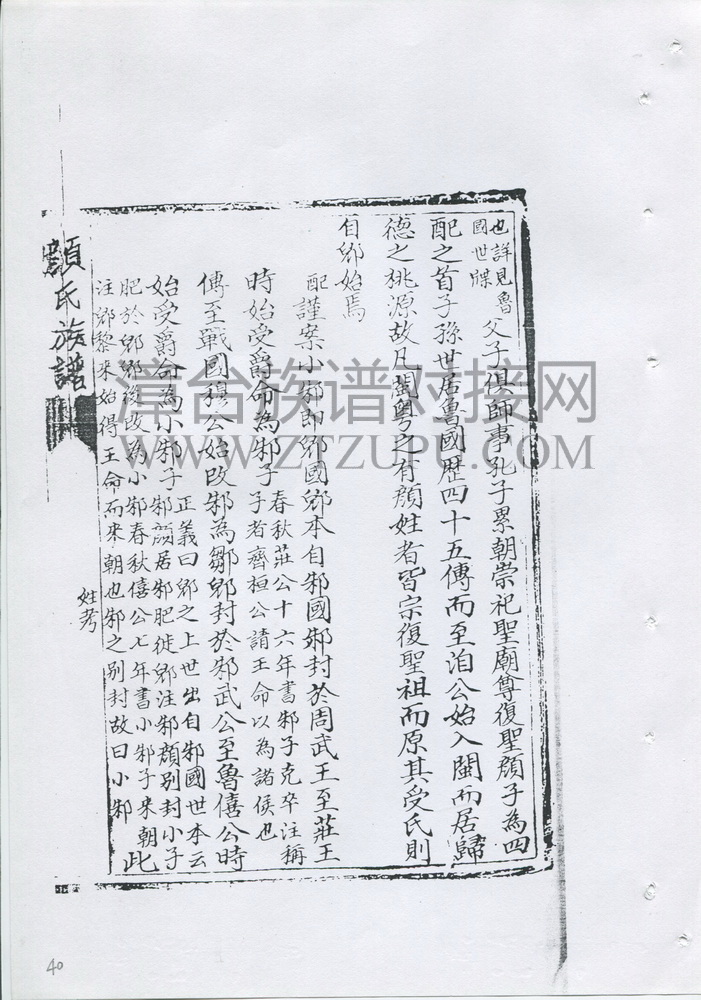 也詳見魯
國世牒
父子俱師事孔子累朝崇祀聖廟尊復聖顏子為四
配之首子孫世居魯國歷四十五傳而至泊公始入閩而居歸
德之桃源故凡閩粵之有顏姓者皆宗復聖祖而原其受氏則
自郳始焉
配謹案小邾即郳國郳本自邾國邾封於周武王至莊王
時始受爵命為邾子
春秋莊公十六年書邾子克卒注稱
子者齊桓公請王命以為諸侯也
傳至戰國穆公始改邾為鄒郳封於邾武公至魯僖公時
始受爵命為小邾子
正義曰郳之上世出自邾國世本云
邾顏居邾肥徙郳注邾顏別封小子
肥於郳郳後改為小邾春秋僖公七年書小邾子來朝
注郳黎來始得王命而來朝也邾之別封故曰小邾
此
姓考
顏氏族譜
漳台族谱对接网
WWW.ZTZUPU.COM
40